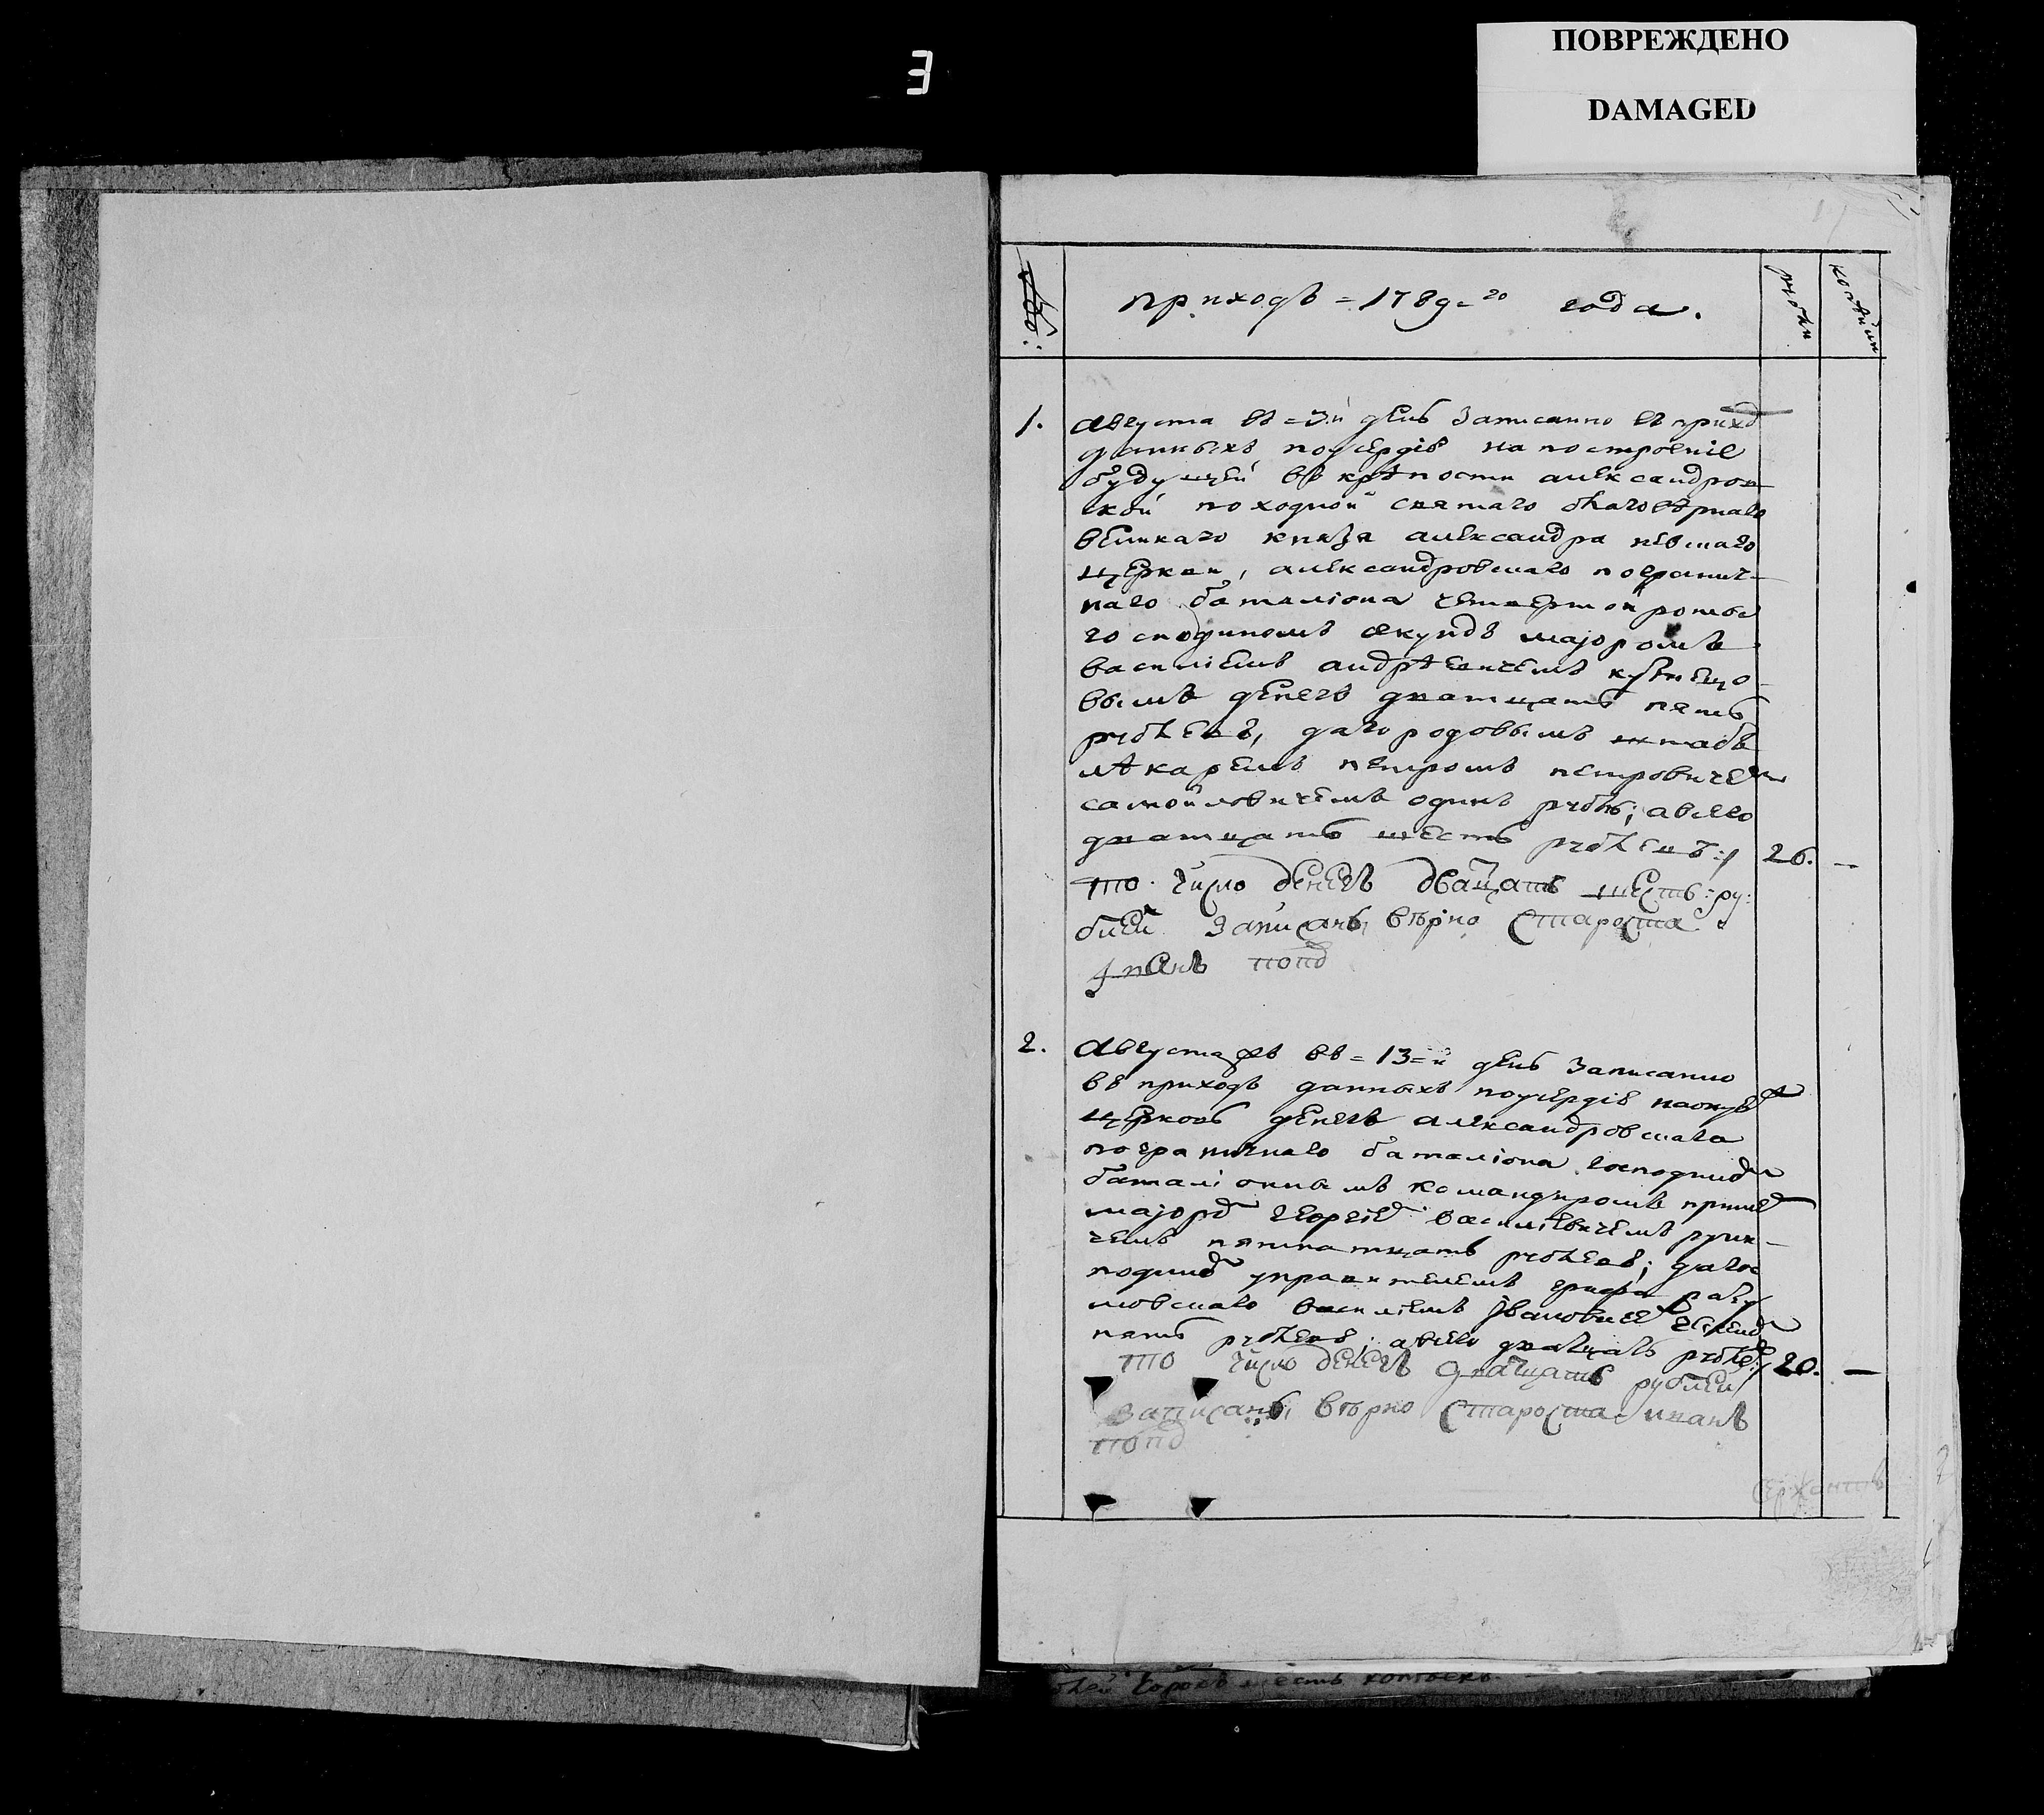 ПОВРЕЖДЕНО
DAMAGED
3
приходъ = 1789-го года.
рубли
копѣйки
1.
Августа въ = 3й день записанно въ приход
данныхъ поусердію на построеніе
будущей въ крѣпости александров
ской походной святаго благовѣрнаго
великаго князя александра невскаго
церкви, александровскаго погранич-
наго баталіона четвертой роты
господиномъ секундъ маіоромъ
василіемъ андрѣевичемъ кузнецо-
вымъ денегъ дватцать пять
рублевъ, дагородовымъ штабъ
лѣкаремъ петромъ петровичем
самойловичемъ одинъ рубль; авсего
дватцать шесть рублевъ:/
26. —
то число денегъ двацать шесть: ру:
блей записанъ вѣрно староста
попо
2.
Августа въ = 13=й день записанно
въ приходъ данныхъ поусердію наоную
церковь денегъ александровскаго
пограничнаго баталіона господином
баталіоннымъ командиромъ примъ
маіоро георгіе василіевичемъ
чемъ пятнатцать рублевъ; даго
подино управителемъ графа разу
мовскаго василіемъ Івановиче
пять рублевъ; авсего дватцать рубле:/
20. —
то число денегъ двацать рублей
записанъ вѣрно староста иванъ
попо
блей сорокъ шесть копѣекъ.